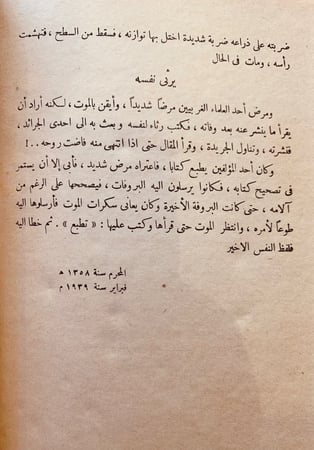 ضربته على ذراعه ضربة شديدة اختل بها توازنه ، فسقط من السطح ، فتهشمت
رأسه ، ومات في الحال
يرثى نفسه
ومرض أحد العلماء الغربيين مرضاً شديداً ، وأيقن بالموت ، لكنه أراد أن
يقرأ ما ينشر عنه بعد وفاته ، فكتب رثاء لنفسه وبعث به الى احدى الجرائد ،
فنشرته ، وتناول الجريدة ، وقرأ المقال حتى اذا انتهى منه فاضت روحه ..!
وكان أحد المؤلفين يطبع كتابا ، فاعتراه مرض شديد ، فأبى إلا أن يستمر
في تصحيح كتابه ، فكانوا يرسلون اليه البروفات ، فيصححها على الرغم من
آلامه ، حتى كانت البروفة الأخيرة وكان يعانى سكرات الموت فأرسلوها اليه
طوعاً لأمره ، وانتظر الموت حتى قرأها وكتب عليها : « تطبع » . ثم خطا اليه
فلفظ النفس الاخير
المحرم سنة ١٣٥٨ هـ
فبراير سنة ١٩٣٩ م